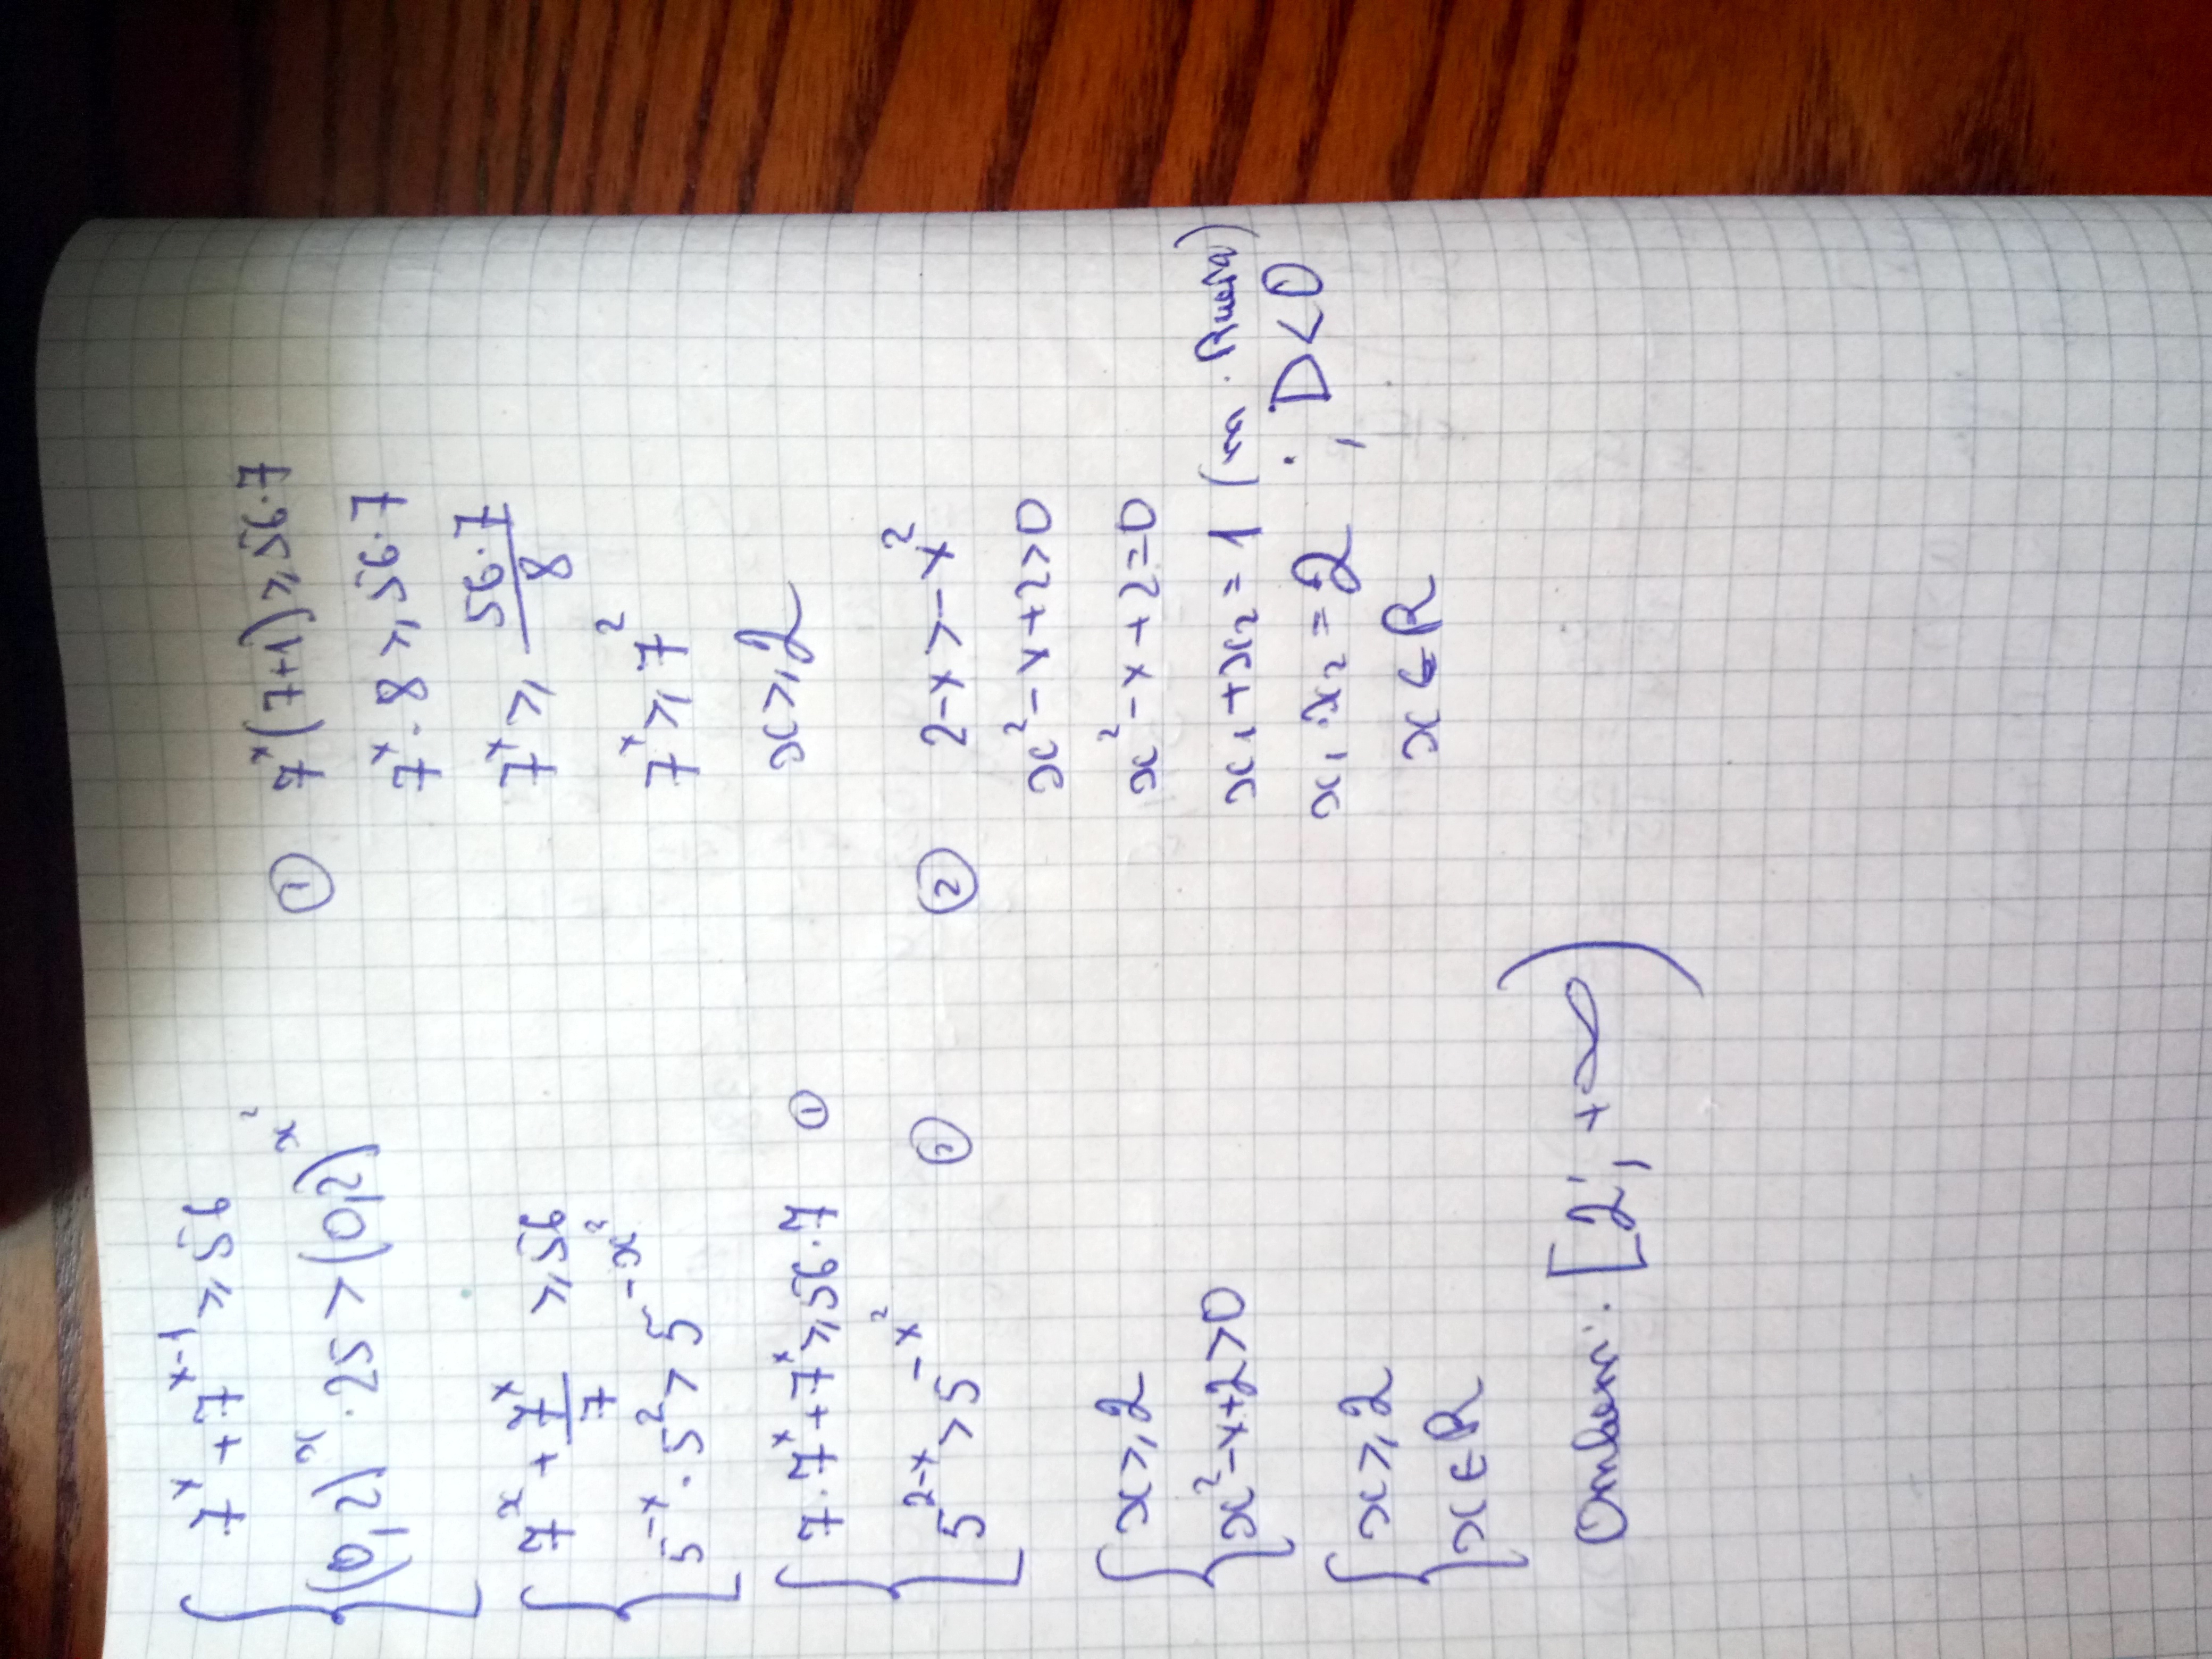 { 7ˣ + 7ˣ⁻¹ ⩾ 56
(0,2)ˣ · 25 > (0,2)^x²
{ 7ˣ + 7ˣ/7 ⩾ 56
5⁻ˣ · 5² > 5^-x²
{ 7 · 7ˣ + 7ˣ ⩾ 56 · 7 ①
5²⁻ˣ > 5^-x² ②
{ x ⩾ 2
x² - x + 2 > 0
{ x ⩾ 2
x ∈ R
Ответ: [2; +∞)
① 7ˣ(7+1) ⩾ 56 · 7
7ˣ · 8 ⩾ 56 · 7
7ˣ ⩾ 56 · 7 / 8
7ˣ ⩾ 7²
x ⩾ 2
② 2 - x > -x²
x² - x + 2 > 0
x² - x + 2 = 0
x₁ + x₂ = 1 (т. Виета)
x₁ · x₂ = 2 ; D < 0
x ∈ R